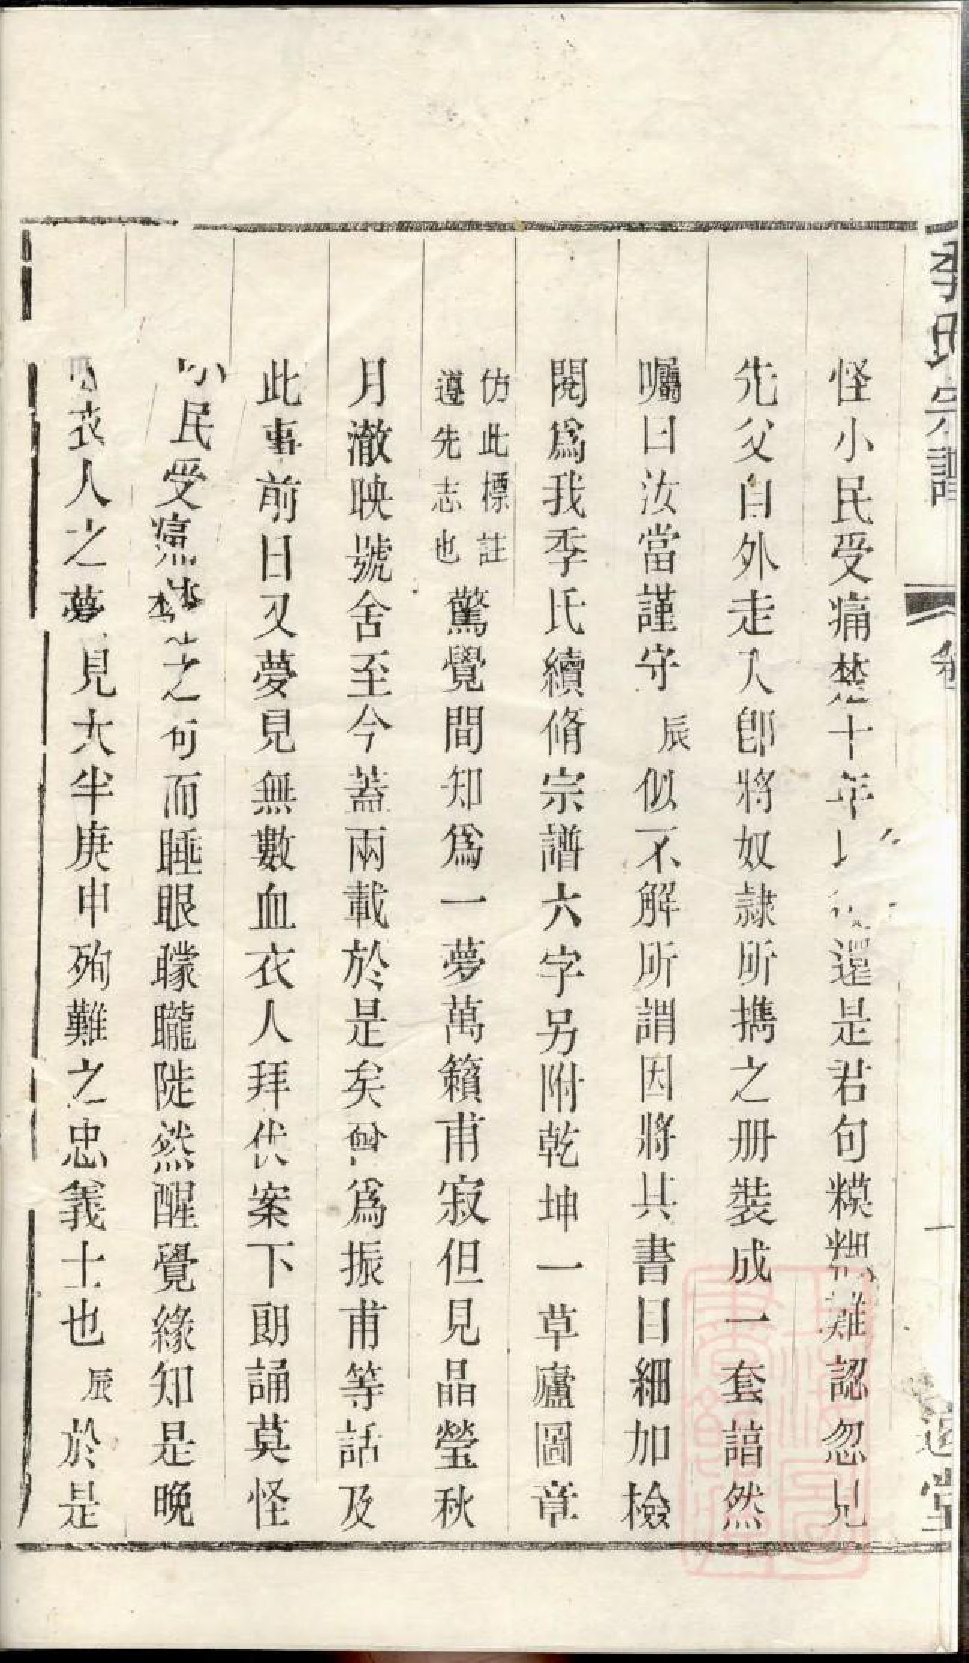 季氏宗譜
卷
一
堂
怪小民受痛楚十年還是君句糢糊難認忽見
先父自外走入卽將奴隷所擕之册裝成一套諳然
囑曰汝當謹守辰似不解所謂因將其書目細加檢
閱爲我季氏續脩宗譜六字另附乾坤一草廬圖章
仿此標註
遵先志也
驚覺間知爲一夢萬籟甫寂但見晶瑩秋
月澈映號舍至今蓋兩載於是矣爲振甫等話及
此事前日又夢見無數血衣人拜伏案下朗誦莫怪
小民受痛楚之句而睡眼矇矓陡然醒覺緣知是晚
衣人之夢見大半庚申殉難之忠義士也辰於是